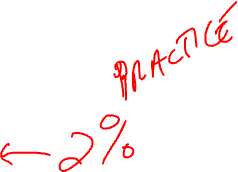 PRACTICE
← 2%